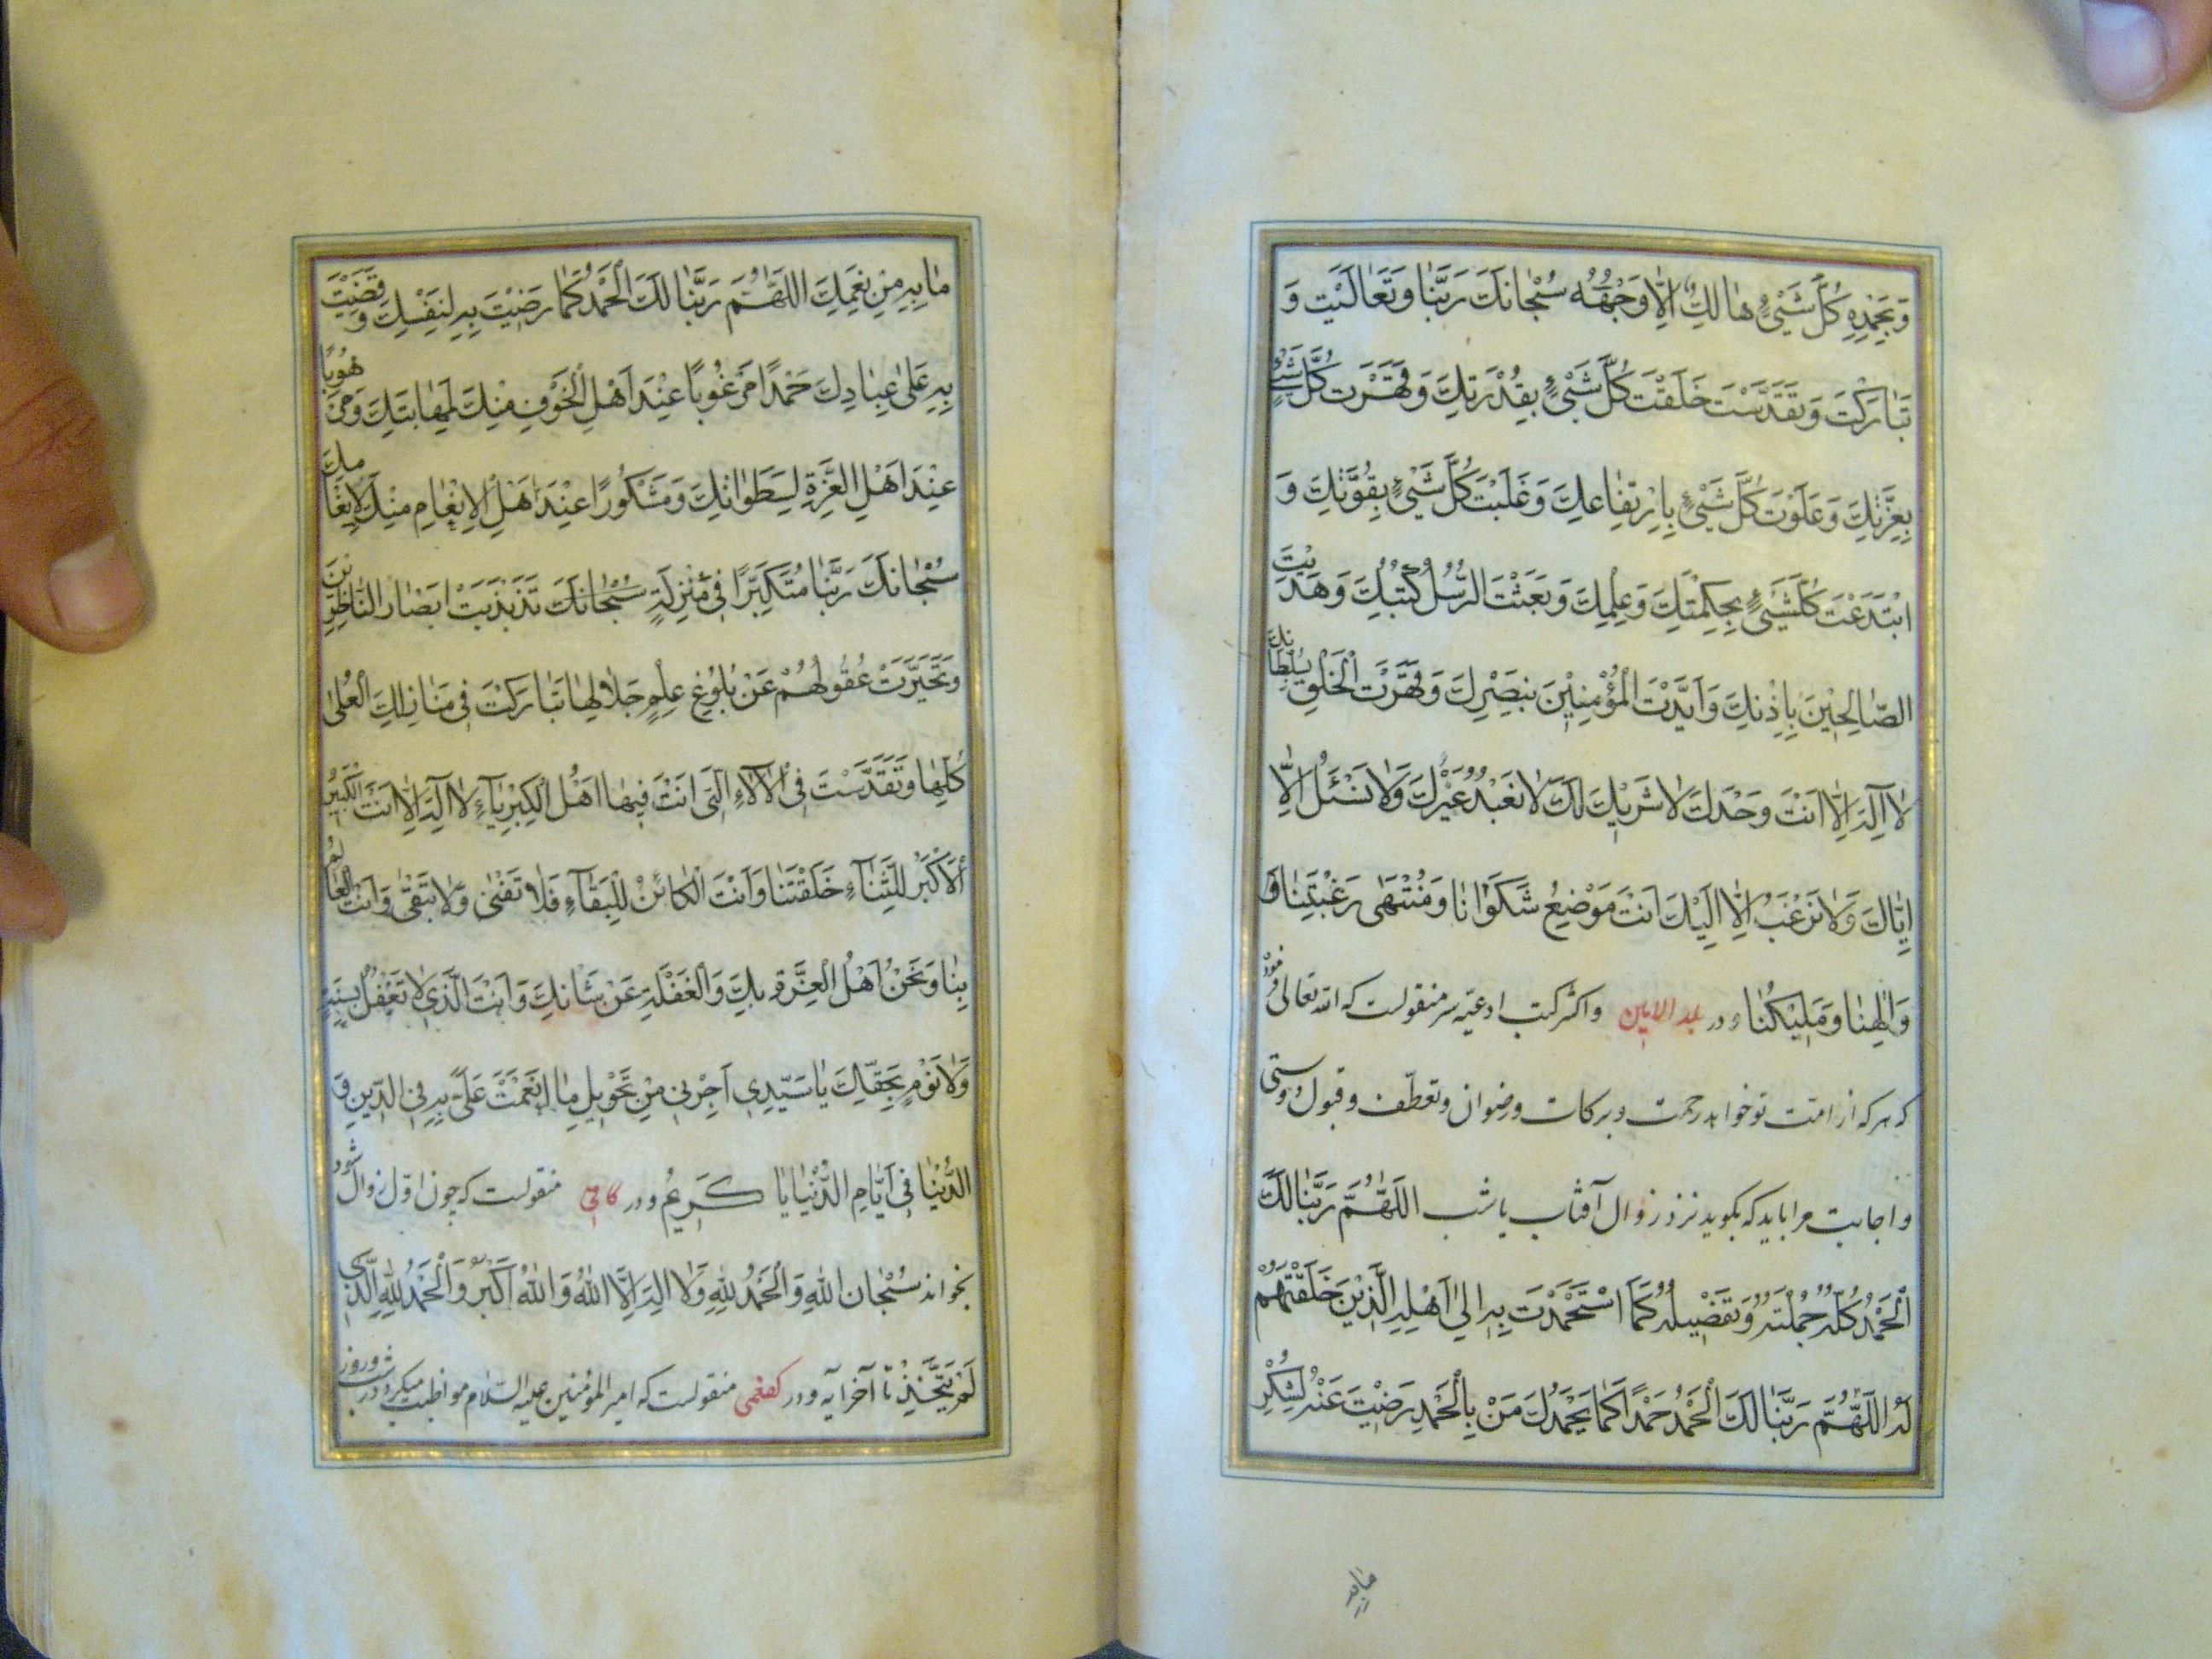 وَبِحَمْدِهِ كُلُّ شَيْئٍ هَالِكٌ اِلَّا وَجْهُهُ سُبْحَانَكَ رَبَّنَا وَتَعَالَيْتَ وَ
تَبَارَكْتَ وَتَقَدَّسْتَ خَلَقْتَ كُلَّ شَيْئٍ بِقُدْرَتِكَ وَقَهَرْتَ كُلَّ شَيْئٍ
بِعِزَّتِكَ وَعَلَوْتَ كُلَّ شَيْئٍ بِارْتِفَاعِكَ وَغَلَبْتَ كُلَّ شَيْئٍ بِقُوَّتِكَ وَ
ابْتَدَعْتَ كُلَّشَيْئٍ بِحِكْمَتِكَ وَعِلْمِكَ وَبَعَثْتَ الرُّسُلَ كُتُبِكَ وَهَدَيْتَ
الصَّالِحِيْنَ بِاِذْنِكَ وَاَيَّدْتَ الْمُؤْمِنِيْنَ بِنَصْرِكَ وَقَهَرْتَ الْخَلْقَ بِسُلْطَانِكَ
لَا اِلٰهَ اِلَّا اَنْتَ وَحْدَكَ لَا شَرِيْكَ لَكَ لَا نَعْبُدُ غَيْرَكَ وَلَا نَسْئَلُ اِلَّا
اِيَّاكَ وَلَا نَرْغَبُ اِلَّا اِلَيْكَ اَنْتَ مَوْضِعُ شَكْوَانَا وَمُنْتَهَى رَغْبَتِنَا وَ
وَاِلٰهُنَا وَمَلِيْكُنَا ودر بلد الامین واکثر کتب ادعیّه سر منقولست که الله تعالی فرمود
که هر که از امّت تو خواهد رحمت وبرکات ورضوان وتعطّف وقبول ودوستی
واجابت مرا باید که بگوید نزد زوال آفتاب یا شب اَللّٰهُمَّ رَبَّنَا لَكَ
الْحَمْدُ كُلُّهُ جُمْلَتُهُ وَتَفْصِيْلُهُ كَمَا اسْتَحْمَدْتَ بِهِ اِلٰى اَهْلِهِ الَّذِيْنَ خَلَقْتَهُمْ
لَهُ اَللّٰهُمَّ رَبَّنَا لَكَ الْحَمْدُ حَمْدًا كَمَا يَحْمَدُكَ مَنْ بِالْحَمْدِ رَضِيْتَ عَنْهُ لِشُكْرِ
مابه
مَا بِهِ مِنْ نِعَمِكَ اَللّٰهُمَّ رَبَّنَا لَكَ الْحَمْدُ كَمَا رَضِيْتَ بِهِ لِنَفْسِكَ وَقَضَيْتَ
بِهِ عَلٰى عِبَادِكَ حَمْدًا مَرْغُوبًا عِنْدَ اَهْلِ الْخَوْفِ مِنْكَ لِمَهَابَتِكَ وَمَرْهُوبًا
عِنْدَ اَهْلِ الْعِزَّةِ لِسَطَوَاتِكَ وَمَشْكُورًا عِنْدَ اَهْلِ الْاِنْعَامِ مِنْكَ لِاِنْعَامِكَ
سُبْحَانَكَ رَبَّنَا مُتَكَبِّرًا فِي مَنْزِلَةٍ سُبْحَانَكَ تَذَبْذَبَتْ اَبْصَارُ النَّاظِرِيْنَ
وَتَحَيَّرَتْ عُقُولُهُمْ عَنْ بُلُوْغِ عِلْمِ جَلَالِهَا تَبَارَكْتَ فِي مَنَازِلِكَ الْعُلٰى
كُلِّهَا وَتَقَدَّسْتَ فِي الْاٰلَاءِ الَّتِي اَنْتَ فِيهَا اَهْلُ الْكِبْرِيَاءِ لَا اِلٰهَ اِلَّا اَنْتَ الْكَبِيْرُ
الْاَكْبَرُ لِلثَّنَاءِ خَلَقْتَنَا وَاَنْتَ الْكَائِنُ لِلْبَقَاءِ فَلَا تَفْنٰى وَلَا نَبْقٰى وَاَنْتَ الْعَالِمُ
بِنَا وَنَحْنُ اَهْلُ الْعِزَّةِ بِكَ وَالْغَفْلَةِ عَنْ شَانِكَ وَاَنْتَ الَّذِي لَا تَغْفُلُ بِسِنَةٍ
وَلَا نَوْمٍ بِحَقِّكَ يَا سَيِّدِي اَجِرْنِي مِنْ تَحْوِيلِ مَا اَنْعَمْتَ عَلَيَّ بِهِ فِي الدِّينِ وَ
الدُّنْيَا فِي اَيَّامِ الدُّنْيَا يَا كَرِيمُ ودر کافی منقولست که چون اوّل زوال شود
بخواند سُبْحَانَ اللّٰهِ وَالْحَمْدُ لِلّٰهِ وَلَا اِلٰهَ اِلَّا اللّٰهُ وَاللّٰهُ اَكْبَرُ وَالْحَمْدُ لِلّٰهِ الَّذِي
لَمْ يَتَّخِذْ تا آخر آیه ودر کفعمی منقولست که امیر المؤمنین علیه السّلام مواظبت میکرد در شب وروز